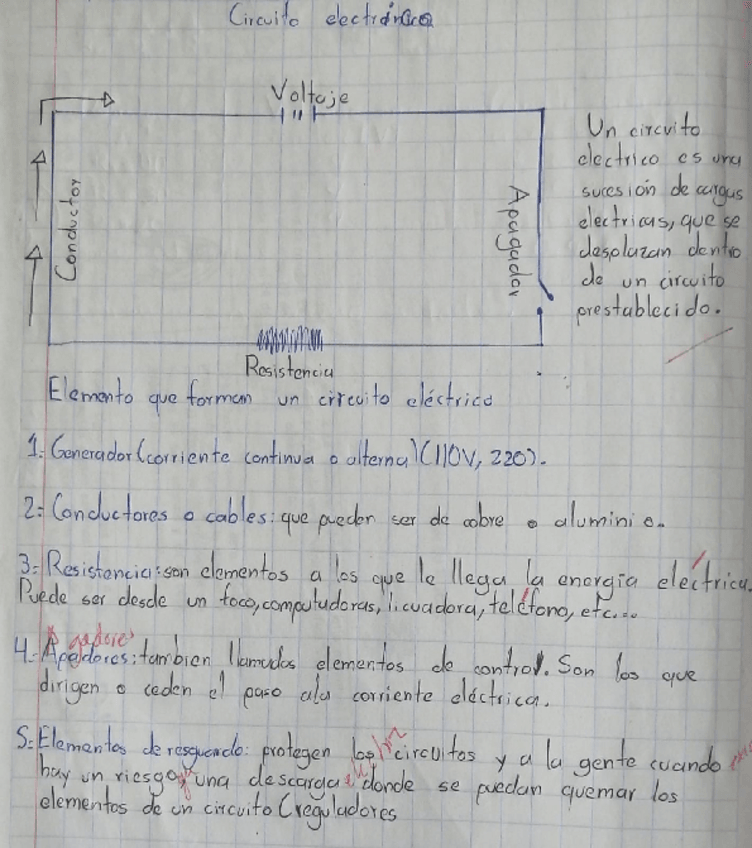 Circuito electrónico
Voltaje
Conductor
Apagador
Resistencia
Un circuito
electrico es una
sucesión de cargas
electricas, que se
desplazan dentro
de un circuito
prestablecido.
Elemento que forman un circuito eléctrico
1.- Generador (corriente continua o alterna) (110V, 220).
2.- Conductores o cables: que pueden ser de cobre o aluminio.
3.- Resistencia: son elementos a los que le llega la energía eléctrica.
Puede ser desde un foco, computadoras, licuadora, teléfono, etc...
gadores
4.- Apagdores: tambien llamados elementos de control. Son los que
dirigen o ceden el paso ala corriente eléctrica.
5.- Elementos de resguardo: protegen los circuitos y a la gente cuando
hay un riesgo, una descarga donde se puedan quemar los
elementos de un circuito (reguladores